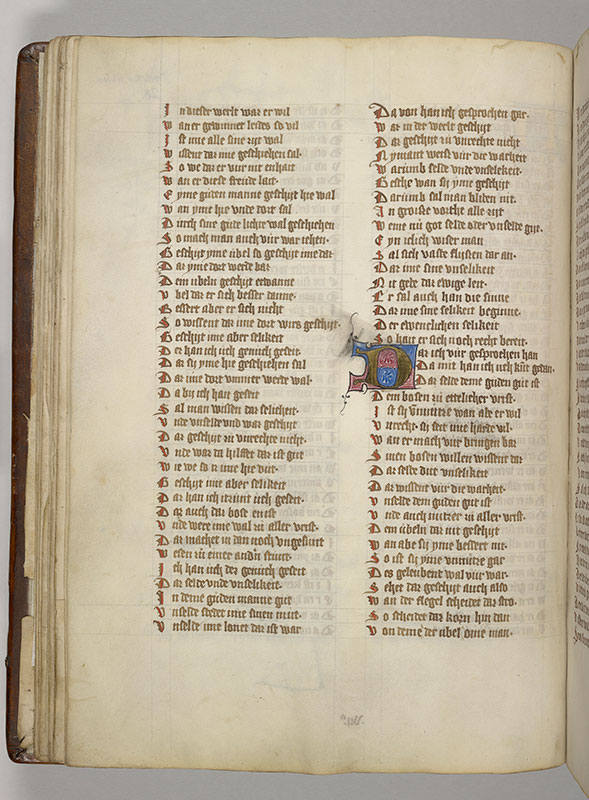 In dieser werlt war er wil
wan er gewinnet leides so vil
Ist ime alle sine zijt wal
wissent daz ime geschiehen sal
So we daz er vur nit enhait
wan er diese freude lait
Eyme guden manne geschijt hie wal
wan yme hie vnde dort sal
Durch sine gude lichte wal geschiehen
So mach man auch vur war iehen
Geschijt yme ubel so geschijt ime daz
Daz yme dort werde baz
Dem ubeln geschijt etwanne
vbel daz er sich besser danne
Bessert aber er sich nicht
So wissent daz ime dort wirs geschijt
Geschijt ime aber selikeit
Der han ich uch genuch geseit
Daz sy yme hie geschiehen sal
Daz ime dort nummer werde wal
Da bij ich han geseit
Sal man wissen daz selicheit
vnde vnselde wid war geschijt
Daz geschijt zu vnrechte nicht
vnde waz da hilffet daz ist gut
wie we so iz ime hie dut
Geschijt ime aber selikeit
Daz han ich izunt uch geseit
Daz auch daz bose en ist
vnde were ime wal zu aller vrist
Daz machet in dan noch vngesunt
wesen zu einer andern stunt
Ich han uch des genuch geseit
Daz selde vnde vnselikeit
In deme guden manne gut
vnselde stedet ime sinen mut
vnselde ime lonet daz ist war
Da von han ich gesprochen gar
waz in der werlt geschijt
Daz geschijt zu vnrechte nicht
Nymant weis vur die warheit
warumb selde vnde vnselekeit
Gesche wan sij yme geschijt
Darumb sal man bliden nit
In groisse vorchte alle zijt
weme nu got selde oder vnselde gijt
Eyn ielich wiser man
Sal sich vaste flyssen dar an
Daz ime sine vnselikeit
Nit gebe daz ewige leit
Er sal auch han die sinne
Daz ime sine selikeit beginne
Der ewenclichen selikeit
So hait er sich noch recht bereit
Daz ich vur gesprochen han
Da mit han ich uch kunt gedan
Daz selde deme guden gut ist
Dem bosen zu etteslicher vrist
Ist sij vnnutze wan als er wil
vnrecht sij deit ime harde vil
wan er mach vur bringen baz
Sinen bosen willen wissent daz
Daz selde dut vnselikeit
Daz wissent vur die warheit
vnselde dem guden gut ist
vnde auch nutzer zu aller vrist
Dem ubeln daz nit geschijt
wan abe sij yme bessert nit
So ist sij yme vnnutze gar
Des geleubent wal vur war
Sehet daz geschijt auch also
wan der flegel scheidet daz stro
So scheidet daz korn hin dan
von deme der ubel ome man